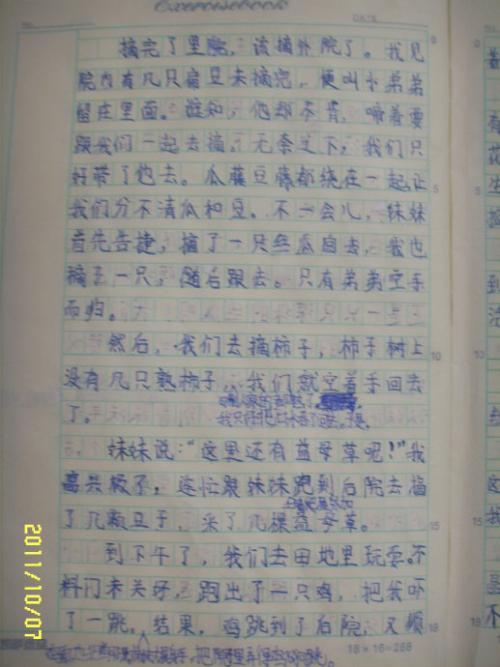 Exercisebook
DATE
摘完了里院，该摘外院了。我见
院内有几只扁豆未摘完，便叫小弟弟
留在里面。谁知，他却不肯，嚷着要
跟我们一起去摘。无奈之下，我们只
好带了他去。瓜藤豆藤都绕在一起让
我们分不清瓜和豆。不一会儿，妹妹
首先告捷，摘了一只丝瓜回去，我也
摘了一只，随后跟去。只有弟弟空手
而归。
然后，我们去摘柿子，柿子树上
没有几只熟柿子，我们就空着手回去
了。
妹妹说："这里还有益母草呢！"我
高兴极了，连忙跟妹妹跑到后院去摘
了几颗豆子，采了几棵益母草。
到下午了，我们去田地里玩耍。不
料门未关好，跑出了一只鸡，把我吓
了一跳。结果，鸡跳到了后院，又顺
5
10
15
18
18×16=288
2011/10/07